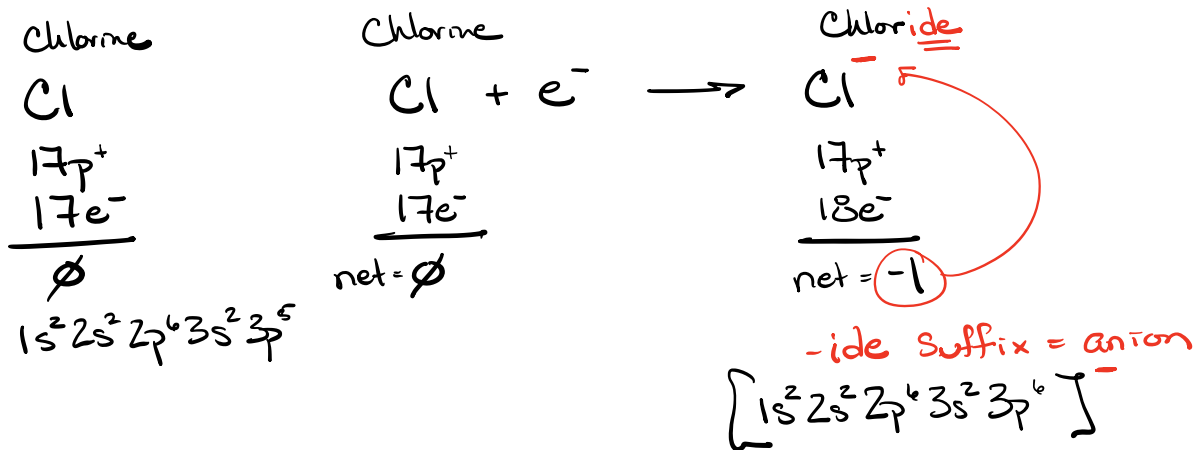 Chlorine
Cl
17p⁺
17e⁻
0̸
1s² 2s² 2p⁶ 3s² 3p⁵
Chlorine
Cl + e⁻ ⟶
17p⁺
17e⁻
net = 0̸
Chloride
Cl⁻
17p⁺
18e⁻
net = -1
-ide suffix = anion
[1s² 2s² 2p⁶ 3s² 3p⁶]⁻